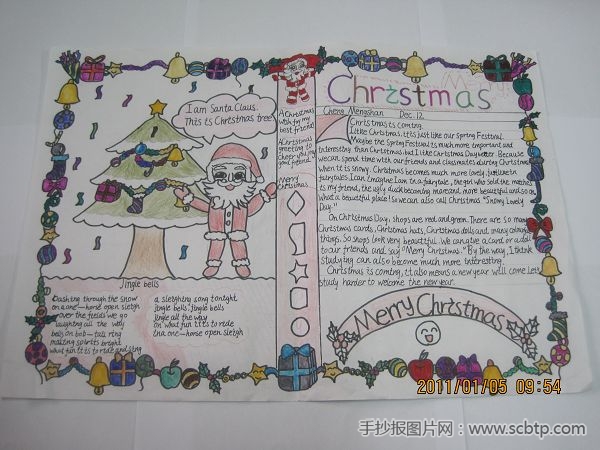 I am Santa Claus.
This is Christmas tree
Jingle bells
Dashing through the snow
on a one-horse open sleigh
over the fields we go
laughing all the way
bells on bob-tail ring
making spirits bright
what fun it is to ride and sing
a sleighing song tonight
jingle bells, jingle bells
jingle all the way
on what fun it is to ride
in a one-horse open sleigh
A Christmas
wish for my
best friend!
A Christmas
greeting to
cheer you my
good friend.
Merry
Christmas
Merry
Christmas
Cheng Mengshan Dec. 12
Christmas is coming.
I like Christmas. It is just like our Spring Festival.
Maybe the Spring Festival is much more important and
interesting than Christmas but I like the Christmas Day better. Because
we can spend time with our friends and classmates during Christmas
when it is snowy. Christmas becomes much more lovely, just like in
fairy tales. I can imagine I am in a fairy tale, the girl who sold the matches
is my friend, the ugly duck becoming more and more beautiful and so on.
What a beautiful place! So we can also call Christmas "Snowy Lovely
Day."
On Christmas Day, shops are red and green. There are so many
Christmas cards, Christmas hats, Christmas dolls and many colourful
things. So shops look very beautiful. We can give a card or a doll
to our friends and say "Merry Christmas." By the way, I think
studying can also become much more interesting.
Christmas is coming, it also means a new year will come. Let's
study harder to welcome the new year.
Merry Christmas
2011/01/05 09:54
手抄报图片网：www.scbtp.com